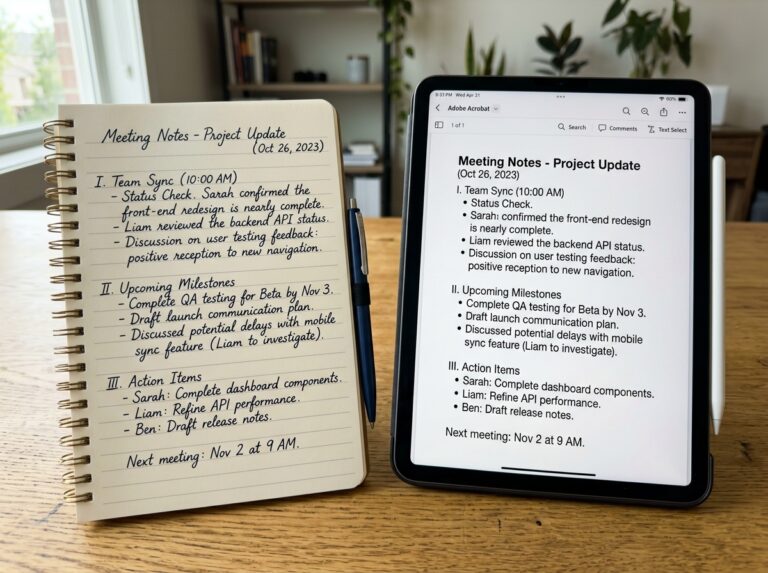 Meeting Notes - Project Update
(Oct 26, 2023)
I. Team Sync (10:00 AM)
- Status Check. Sarah confirmed the
front-end redesign is nearly complete.
- Liam reviewed the backend API status.
- Discussion on user testing feedback:
positive reception to new navigation.
II. Upcoming Milestones
- Complete QA testing for Beta by Nov 3.
- Draft launch communication plan.
- Discussed potential delays with mobile
sync feature (Liam to investigate).
III. Action Items
- Sarah: Complete dashboard components.
- Liam: Refine API performance.
- Ben: Draft release notes.
Next meeting: Nov 2 at 9 AM.
9:37 PM Wed Apr 21
60%
Adobe Acrobat
1 of 1
Search
Comments
Text Select
Meeting Notes - Project Update
(Oct 26, 2023)
I. Team Sync (10:00 AM)
• Status Check.
• Sarah: confirmed the front-end redesign
is nearly complete.
• Liam reviewed the backend API status.
• Discussion on user testing feedback:
positive reception to new navigation.
II. Upcoming Milestones
• Complete QA testing for Beta by Nov 3.
• Draft launch communication plan.
• Discussed potential delays with mobile
sync feature (Liam to investigate).
III. Action Items
• Sarah: Complete dashboard components.
• Liam: Refine API performance.
• Ben: Draft release notes.
Next meeting: Nov 2 at 9 AM.